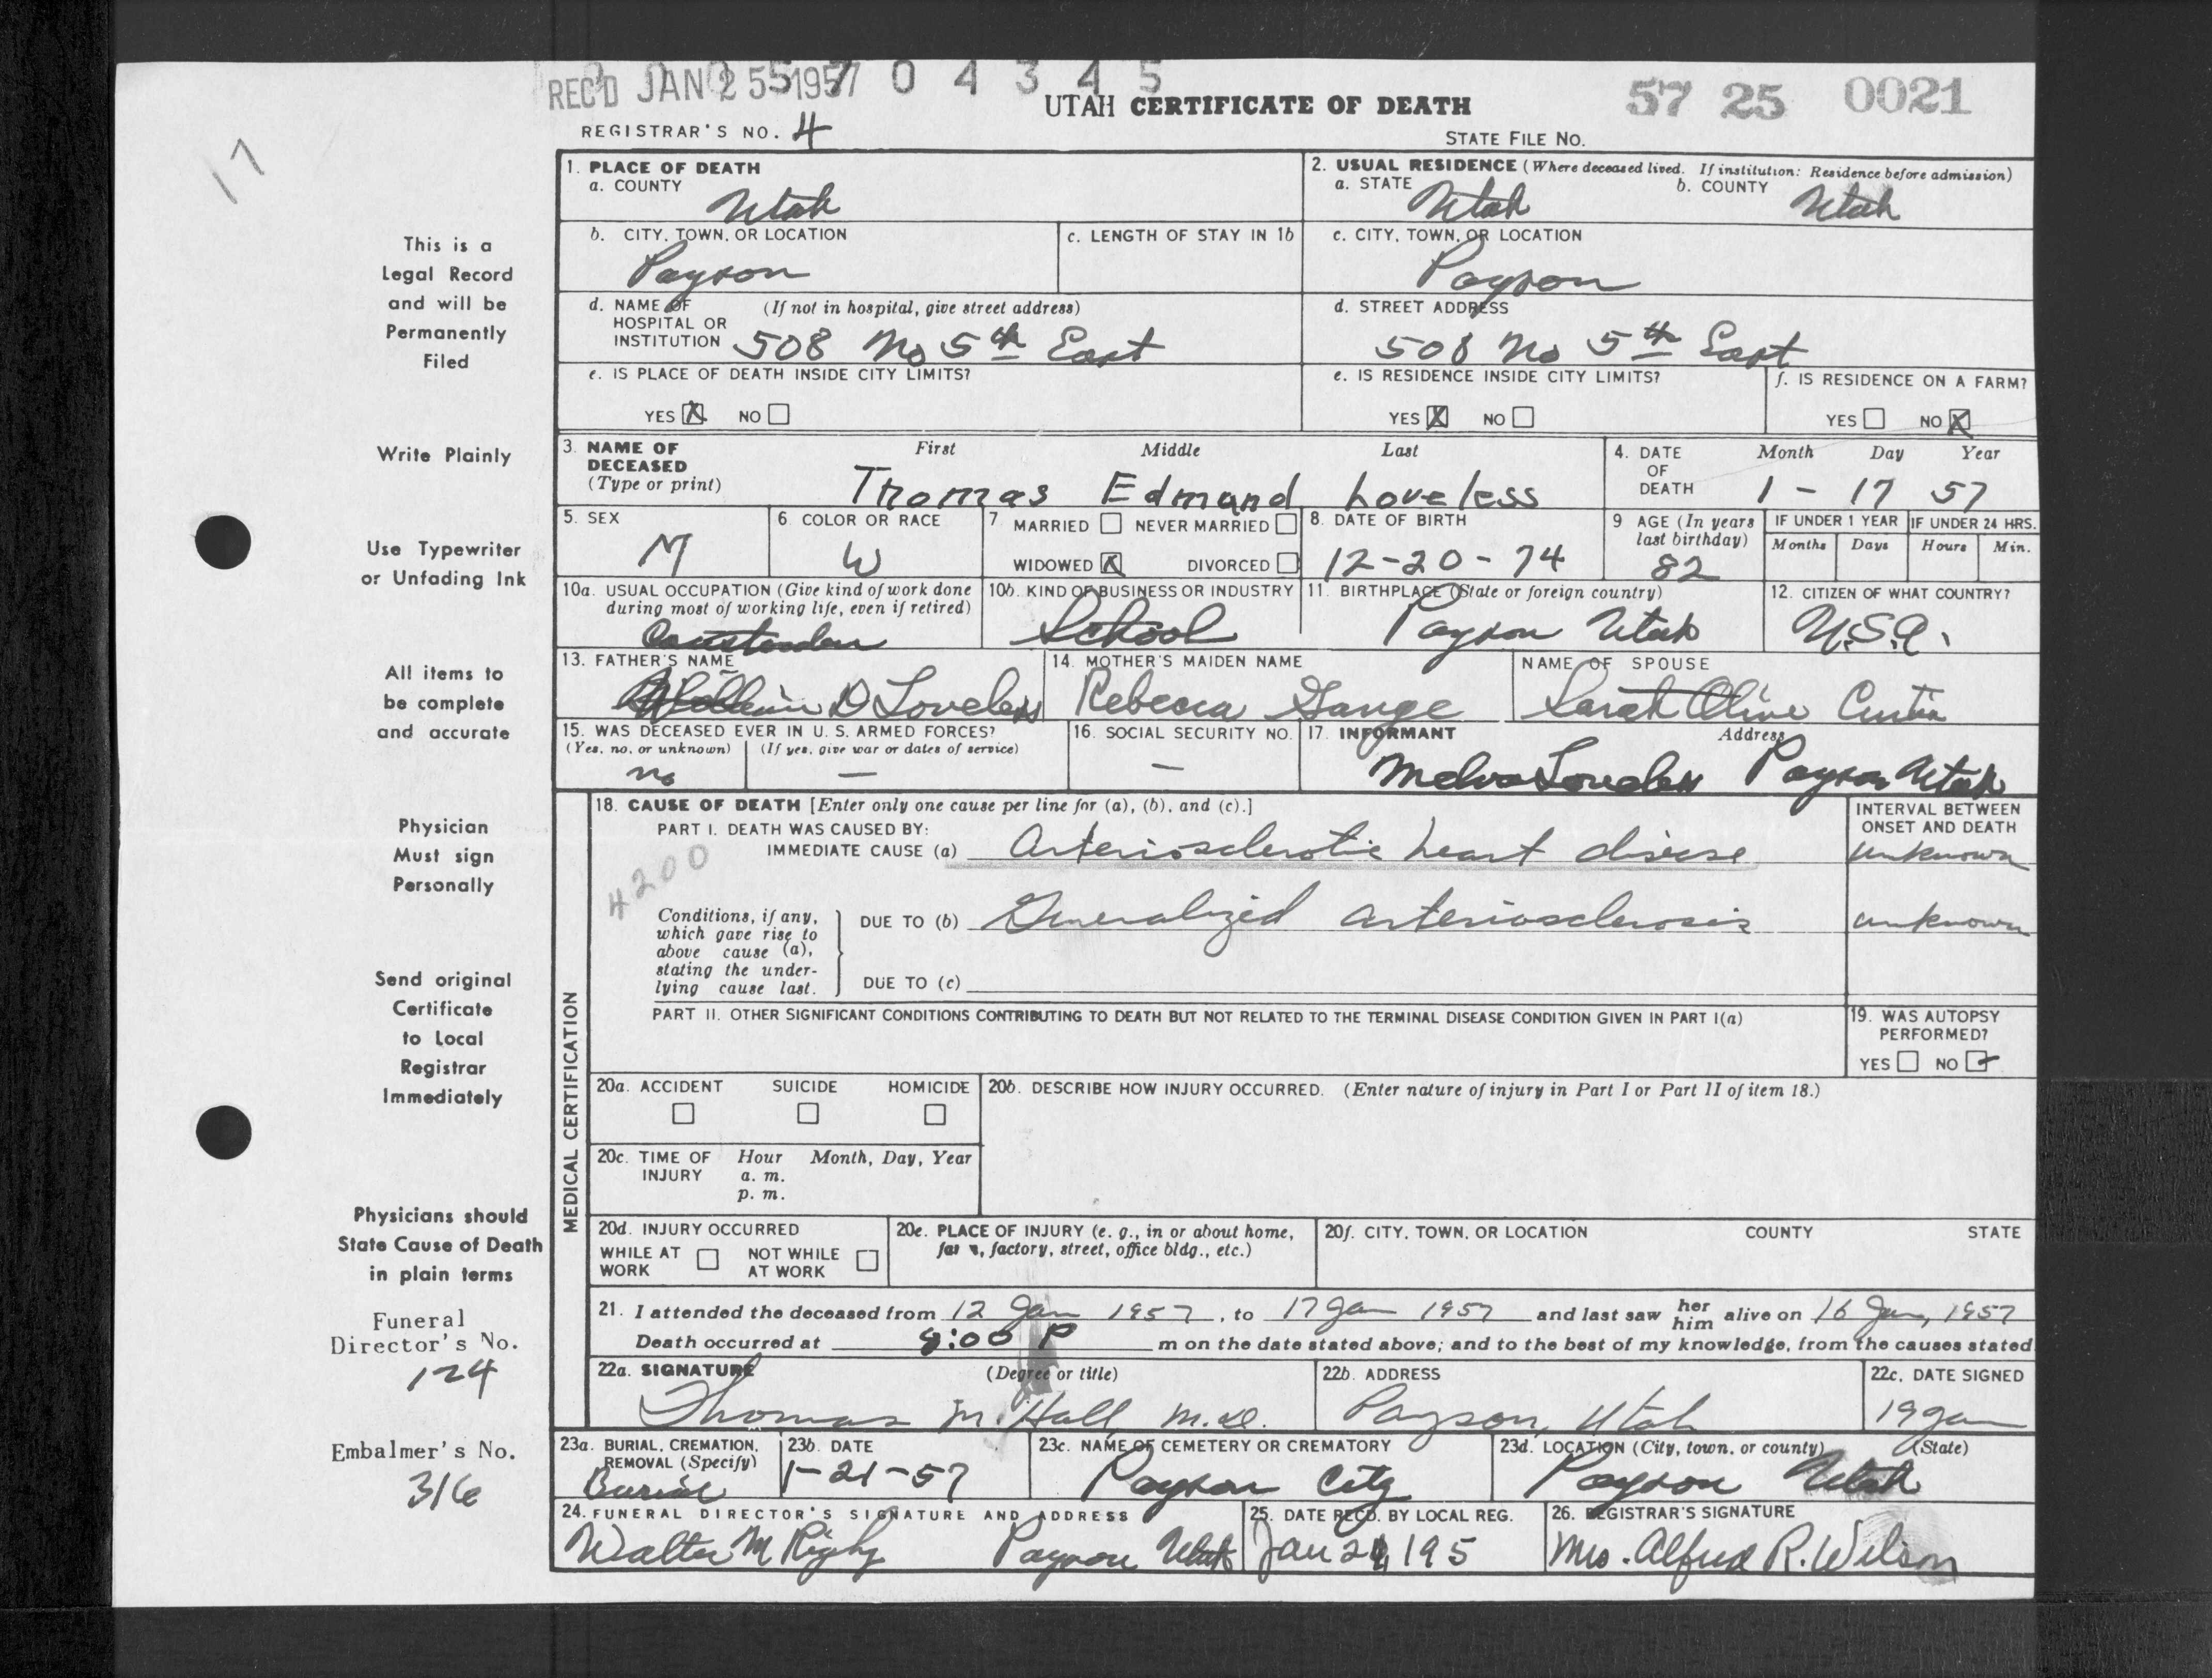 REC'D JAN 25 1957 0 4 3 4 5
57 25 0021
UTAH CERTIFICATE OF DEATH
REGISTRAR'S NO. 4
STATE FILE NO.
17
1. PLACE OF DEATH
a. COUNTY
Utah
2. USUAL RESIDENCE (Where deceased lived. If institution: Residence before admission)
a. STATE Utah b. COUNTY Utah
b. CITY, TOWN, OR LOCATION
Payson
c. LENGTH OF STAY IN 1b
c. CITY, TOWN, OR LOCATION
Payson
d. NAME OF HOSPITAL OR INSTITUTION (If not in hospital, give street address)
508 No 5th East
d. STREET ADDRESS
508 No 5th East
e. IS PLACE OF DEATH INSIDE CITY LIMITS?
YES X NO
e. IS RESIDENCE INSIDE CITY LIMITS?
YES X NO
f. IS RESIDENCE ON A FARM?
YES NO X
3. NAME OF DECEASED (Type or print)
First Middle Last
Thomas Edmund Loveless
4. DATE OF DEATH Month Day Year
1 - 17 57
5. SEX
M
6 COLOR OR RACE
W
7 MARRIED NEVER MARRIED
WIDOWED X DIVORCED
8. DATE OF BIRTH
12-20-74
9 AGE (In years last birthday)
82
IF UNDER 1 YEAR
Months Days
IF UNDER 24 HRS.
Hours Min.
10a. USUAL OCCUPATION (Give kind of work done
during most of working life, even if retired)
10b. KIND OF BUSINESS OR INDUSTRY
School
11. BIRTHPLACE (State or foreign country)
Payson Utah
12. CITIZEN OF WHAT COUNTRY?
U.S.A.
13. FATHER'S NAME
William D Loveless
14. MOTHER'S MAIDEN NAME
Rebecca Gange
NAME OF SPOUSE
Sarah Olive Curtis
15. WAS DECEASED EVER IN U. S. ARMED FORCES?
(Yes, no, or unknown) (If yes, give war or dates of service)
no —
16. SOCIAL SECURITY NO.
—
17. INFORMANT Address
Melva Loveless Payson Utah
MEDICAL CERTIFICATION
18. CAUSE OF DEATH [Enter only one cause per line for (a), (b), and (c).]
INTERVAL BETWEEN
ONSET AND DEATH
PART I. DEATH WAS CAUSED BY:
IMMEDIATE CAUSE (a) Arteriosclerotic heart disease unknown
4200
Conditions, if any,
which gave rise to
above cause (a),
stating the under-
lying cause last.
DUE TO (b) Generalized arteriosclerosis unknown
DUE TO (c)
PART II. OTHER SIGNIFICANT CONDITIONS CONTRIBUTING TO DEATH BUT NOT RELATED TO THE TERMINAL DISEASE CONDITION GIVEN IN PART I(a)
19. WAS AUTOPSY
PERFORMED?
YES NO
20a. ACCIDENT SUICIDE HOMICIDE
20b. DESCRIBE HOW INJURY OCCURRED. (Enter nature of injury in Part I or Part II of item 18.)
20c. TIME OF INJURY Hour Month, Day, Year
a. m.
p. m.
20d. INJURY OCCURRED
WHILE AT WORK NOT WHILE AT WORK
20e. PLACE OF INJURY (e. g., in or about home,
factory, street, office bldg., etc.)
20f. CITY, TOWN, OR LOCATION COUNTY STATE
21. I attended the deceased from 12 Jan 1957, to 17 Jan 1957 and last saw her him alive on 16 Jan, 1957
Death occurred at 8:00 P m on the date stated above; and to the best of my knowledge, from the causes stated
22a. SIGNATURE (Degree or title)
Thomas M. Hall M.D.
22b. ADDRESS
Payson, Utah
22c. DATE SIGNED
19 Jan
23a. BURIAL, CREMATION, REMOVAL (Specify)
Burial
23b. DATE
1-21-57
23c. NAME OF CEMETERY OR CREMATORY
Payson City
23d. LOCATION (City, town, or county) (State)
Payson Utah
24. FUNERAL DIRECTOR'S SIGNATURE AND ADDRESS
Walter M Rigby Payson Utah
25. DATE RECD. BY LOCAL REG.
Jan 21 195
26. REGISTRAR'S SIGNATURE
Mrs. Alfred R. Wilson
This is a
Legal Record
and will be
Permanently
Filed
Write Plainly
Use Typewriter
or Unfading Ink
All items to
be complete
and accurate
Physician
Must sign
Personally
Send original
Certificate
to Local
Registrar
Immediately
Physicians should
State Cause of Death
in plain terms
Funeral
Director's No.
124
Embalmer's No.
316